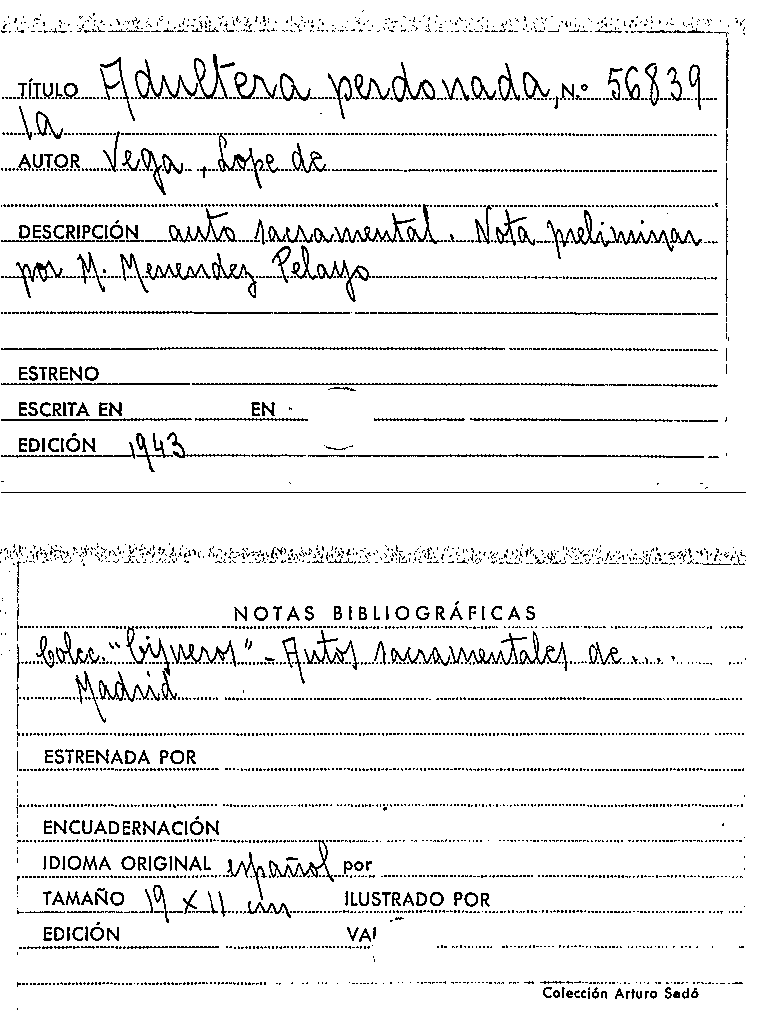 TÍTULO Adultera perdonada, N.º 56839
la
AUTOR Vega, Lope de
DESCRIPCIÓN auto sacramental. Nota preliminar
por M. Menendez Pelayo
ESTRENO
ESCRITA EN EN
EDICIÓN 1943
NOTAS BIBLIOGRÁFICAS
Colec. "Cisneros" - Autos sacramentales de ....
Madrid
ESTRENADA POR
ENCUADERNACIÓN
IDIOMA ORIGINAL español por
TAMAÑO 19 x 11 cm ILUSTRADO POR
EDICIÓN VA
Colección Arturo Sedó